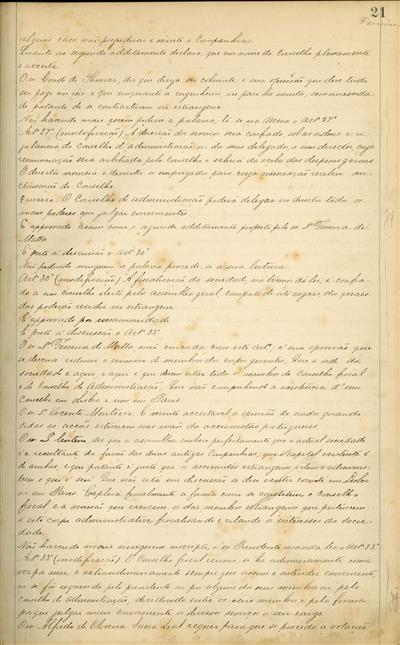 21
algum caso não prejudicar e isento a Companhia.
Quanto ao segundo additamento declara que em nome do Conselho plenamente
o acceita.
O Sr. Conde de Thomar, diz que deseja ser coherente e é sua opinião que deve tudo
ser pago em reis, e que emquanto a engenheiros, no paiz ha muitos, sem necessida-
de portanto de se contractarem no estrangeiro.
Não havendo mais quem pedisse a palavra, lê-se na Mesa o Artº 27º
Artº 27º (modificação) A direcção do serviço será confiada sob as ordens e vi-
gilancia do conselho d'administração ou do seu delegado, a um director cuja
remuneração será arbitrada pelo Conselho e sahirá da verba das despezas geraes
O director nomeia e demitte os empregados para cuja nomeação recebeu au-
ctorisação do Conselho
§ unico. O Conselho de administração poderá delegar no director todos os
mais poderes que julgar convenientes
É approvado assim como o segundo additamento proposto pelo Sr. Ferreira de
Mattos
É posto á discussão o Artº 30º
Não pedindo ninguem a palavra procede-se á sua leitura.
Artº 30º (modificação) A fiscalisação da sociedade, nos termos da lei, é confia-
da a um conselho eleito pela assemblea geral composto de sete vogaes dos quaes
dois poderão residir no estrangeiro.
É approvado por unanimidade
É posto á discussão o Artº 33º
O Sr. Ferreira de Mattos, não concorda com este Artº, é sua opinião que
se deveria o numero de membros do corpo gerente. Que a séde da
sociedade é aqui, e aqui é que devem estar todos os membros do Conselho fiscal
e do Conselho de Administração. Que não comprehende a existencia d'um
Conselho em Lisboa e um em Paris
O Sr. Vicente Monteiro. É muito acceitavel a opinião do orador quando
todas as acções estiverem nas mãos de accionistas portuguezes.
O Sr. diz que a assemblea conhece perfeitamente que a actual sociedade
é a resultante da fusão das duas antigas Companhias, que o capital existente é
de ambas, e que portanto é justo que os accionistas estrangeiros
tem o que é seu. Que não está em discussão a dos comités em Lisboa
ou em Paris. Explica finalmente a forma como se constituiu o Conselho
fiscal e a missão que exercem os dois membros estrangeiros que pertencem
a este corpo administrativo, fiscalisando e zelando os interesses da socie-
dade
Não havendo mais ninguem inscripto, o Sr. Presidente manda ler o Artº 33º
Artº 33º (modificação) O Conselho fiscal reune-se ordinariamente uma
vez por mez e extraordinariamente sempre que assim o entender conveniente,
ou se fôr requerido pelo presidente ou por algum dos seus membros ou pelo
conselho de administração, dividindo entre os seus membros e pela forma
porque julgar mais conveniente os diversos serviços a seu cargo.
O Sr. Alfredo de Oliveira Sousa Leal requer para que se proceda á votação